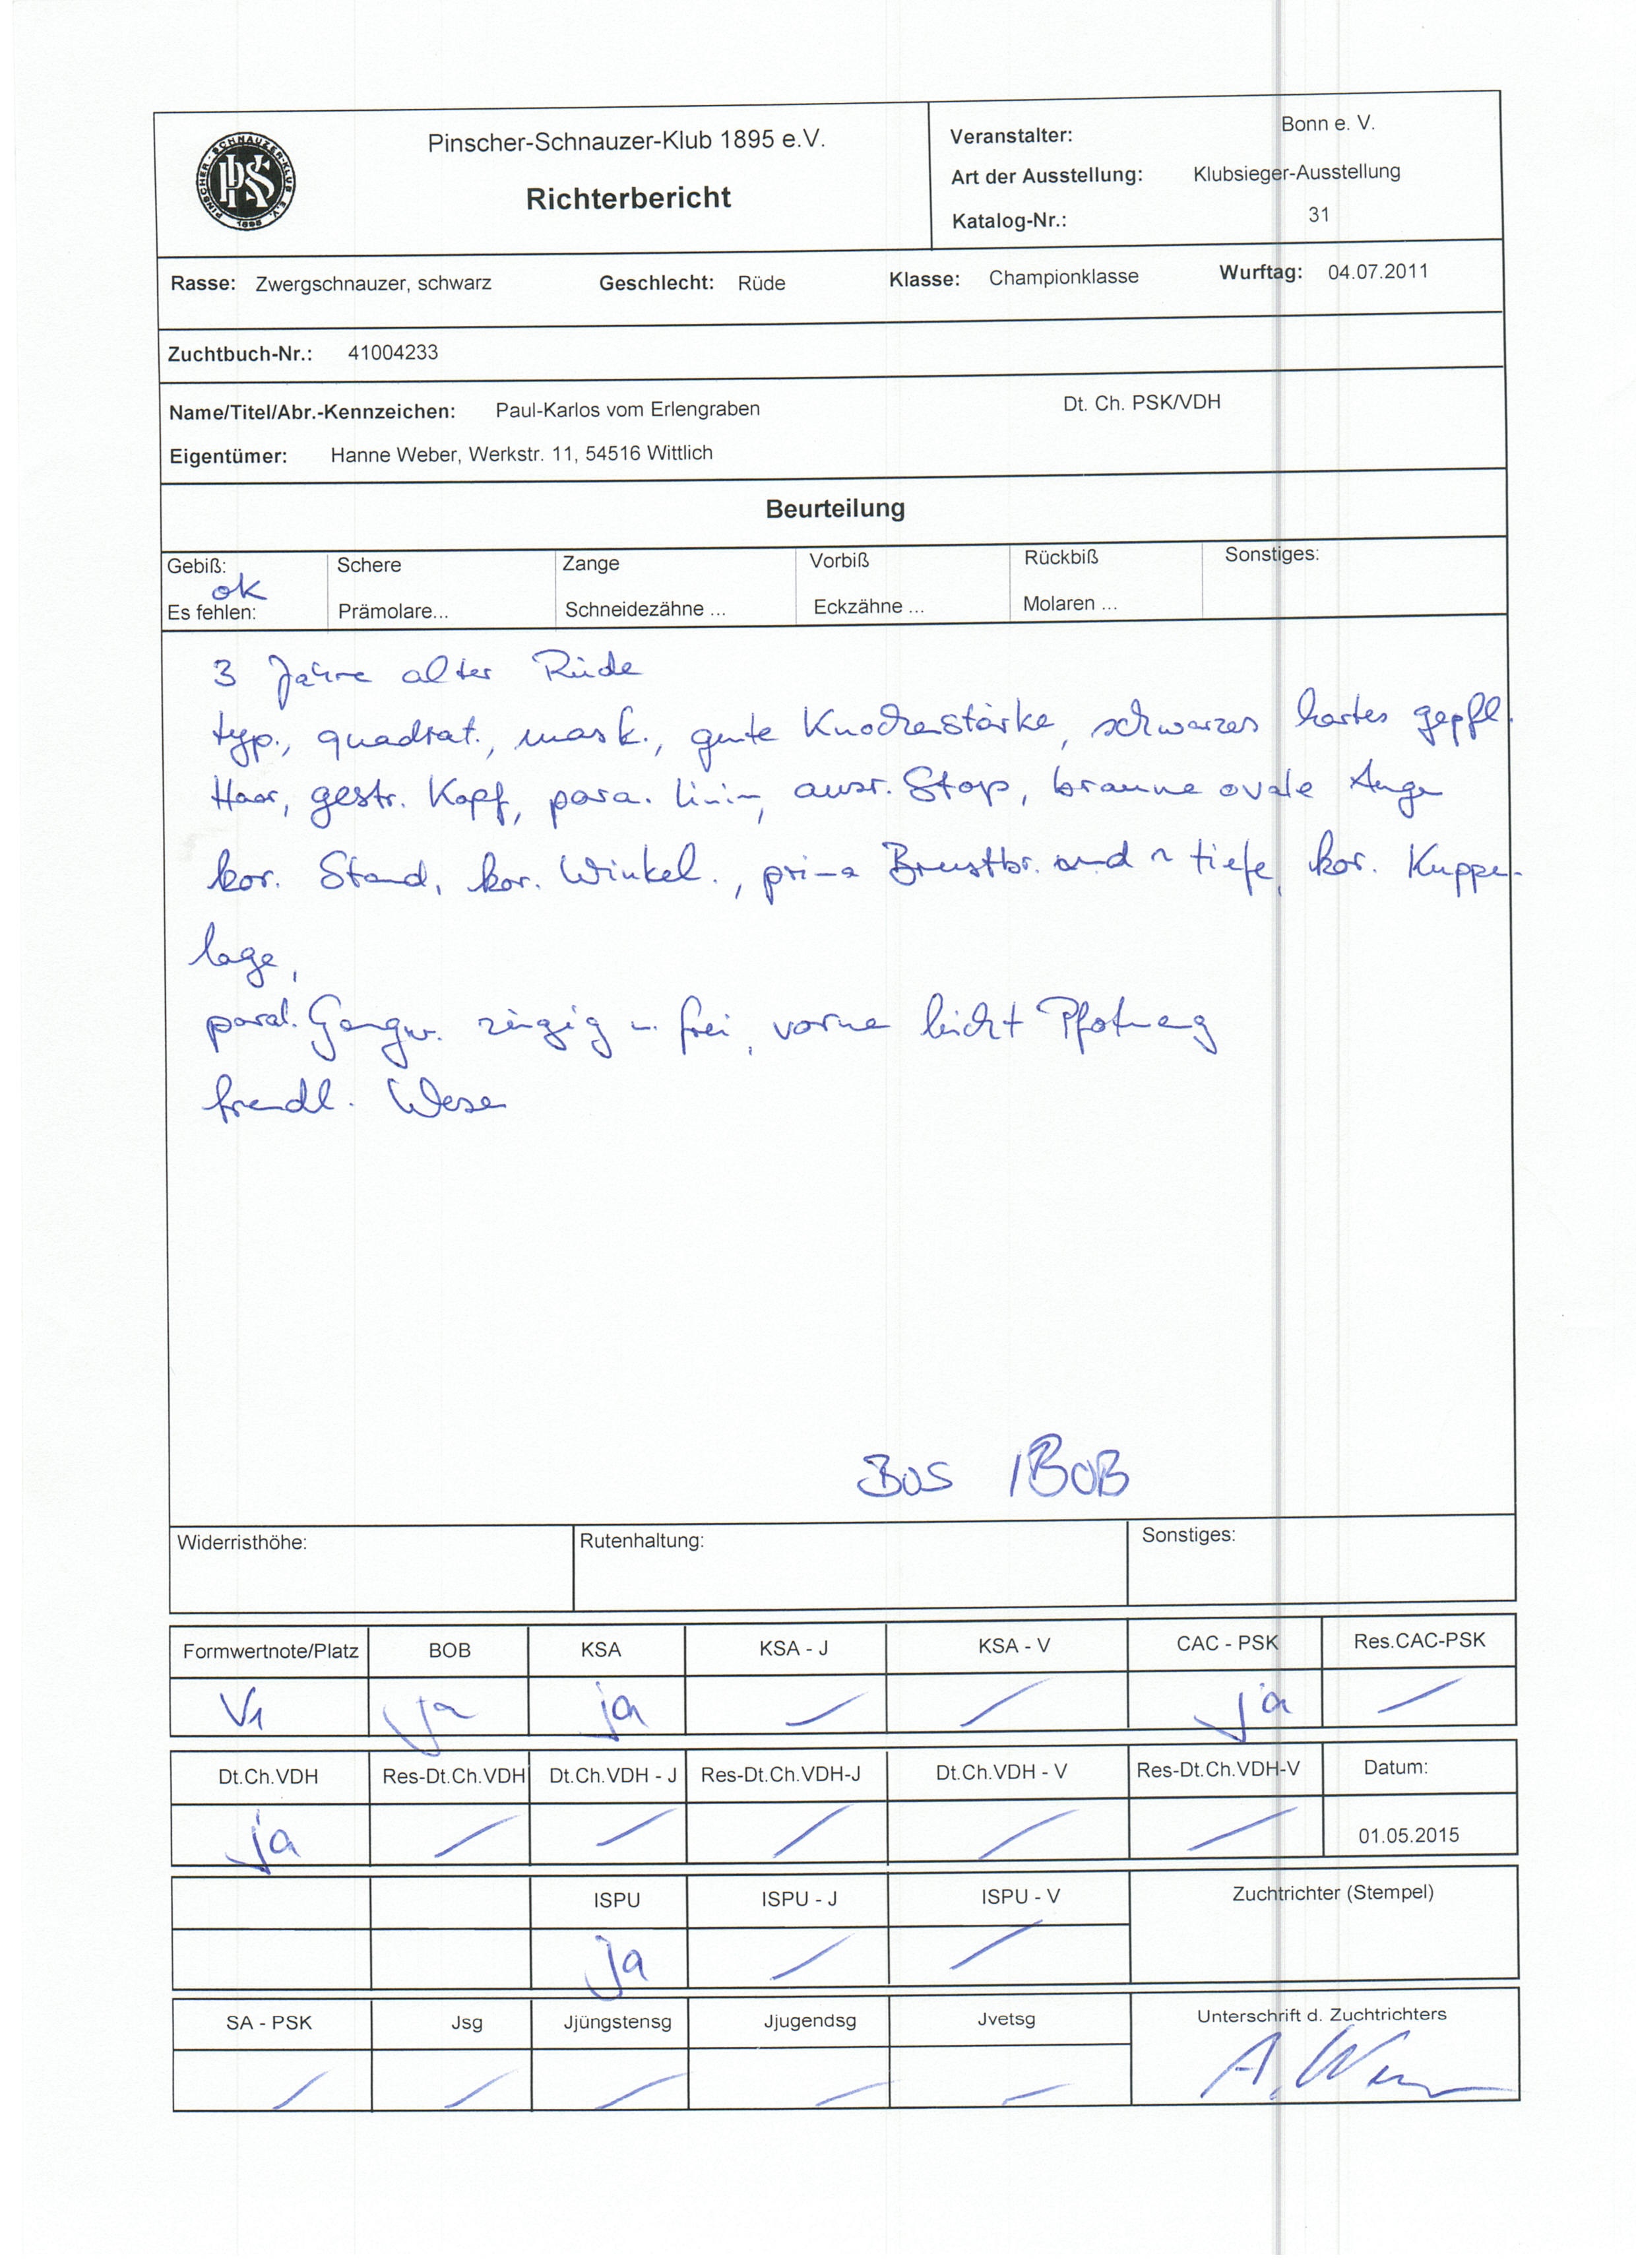 Pinscher-Schnauzer-Klub 1895 e.V.
Richterbericht
PINSCHER-SCHNAUZER-KLUB E.V. 1895
PSK
Veranstalter: Bonn e. V.
Art der Ausstellung: Klubsieger-Ausstellung
Katalog-Nr.: 31
Rasse: Zwergschnauzer, schwarz Geschlecht: Rüde Klasse: Championklasse Wurftag: 04.07.2011
Zuchtbuch-Nr.: 41004233
Name/Titel/Abr.-Kennzeichen: Paul-Karlos vom Erlengraben Dt. Ch. PSK/VDH
Eigentümer: Hanne Weber, Werkstr. 11, 54516 Wittlich
Beurteilung
Gebiß: Schere Zange Vorbiß Rückbiß Sonstiges:
ok
Es fehlen: Prämolare... Schneidezähne ... Eckzähne ... Molaren ...
3 Jahre alter Rüde
typ., quadrat., mask., gute Knochenstärke, schwarzes hartes gepfl.
Haar, gestr. Kopf, para. Linien, ausr. Stop, braune ovale Augen
kor. Stand, kor. Winkel., prima Brustbr. und - tiefe, kor. Kuppe-
lage,
paral. Gangw. zügig u. frei, vorne leicht
freudl. Wesen
BOS / BOB
Widerristhöhe: Rutenhaltung: Sonstiges:
Formwertnote/Platz BOB KSA KSA - J KSA - V CAC - PSK Res.CAC-PSK
V1 ja ja / / ja /
Dt.Ch.VDH Res-Dt.Ch.VDH Dt.Ch.VDH - J Res-Dt.Ch.VDH-J Dt.Ch.VDH - V Res-Dt.Ch.VDH-V Datum:
ja / / / / / 01.05.2015
ISPU ISPU - J ISPU - V Zuchtrichter (Stempel)
ja / /
SA - PSK Jsg Jjüngstensg Jjugendsg Jvetsg Unterschrift d. Zuchtrichters
/ / / / / A.